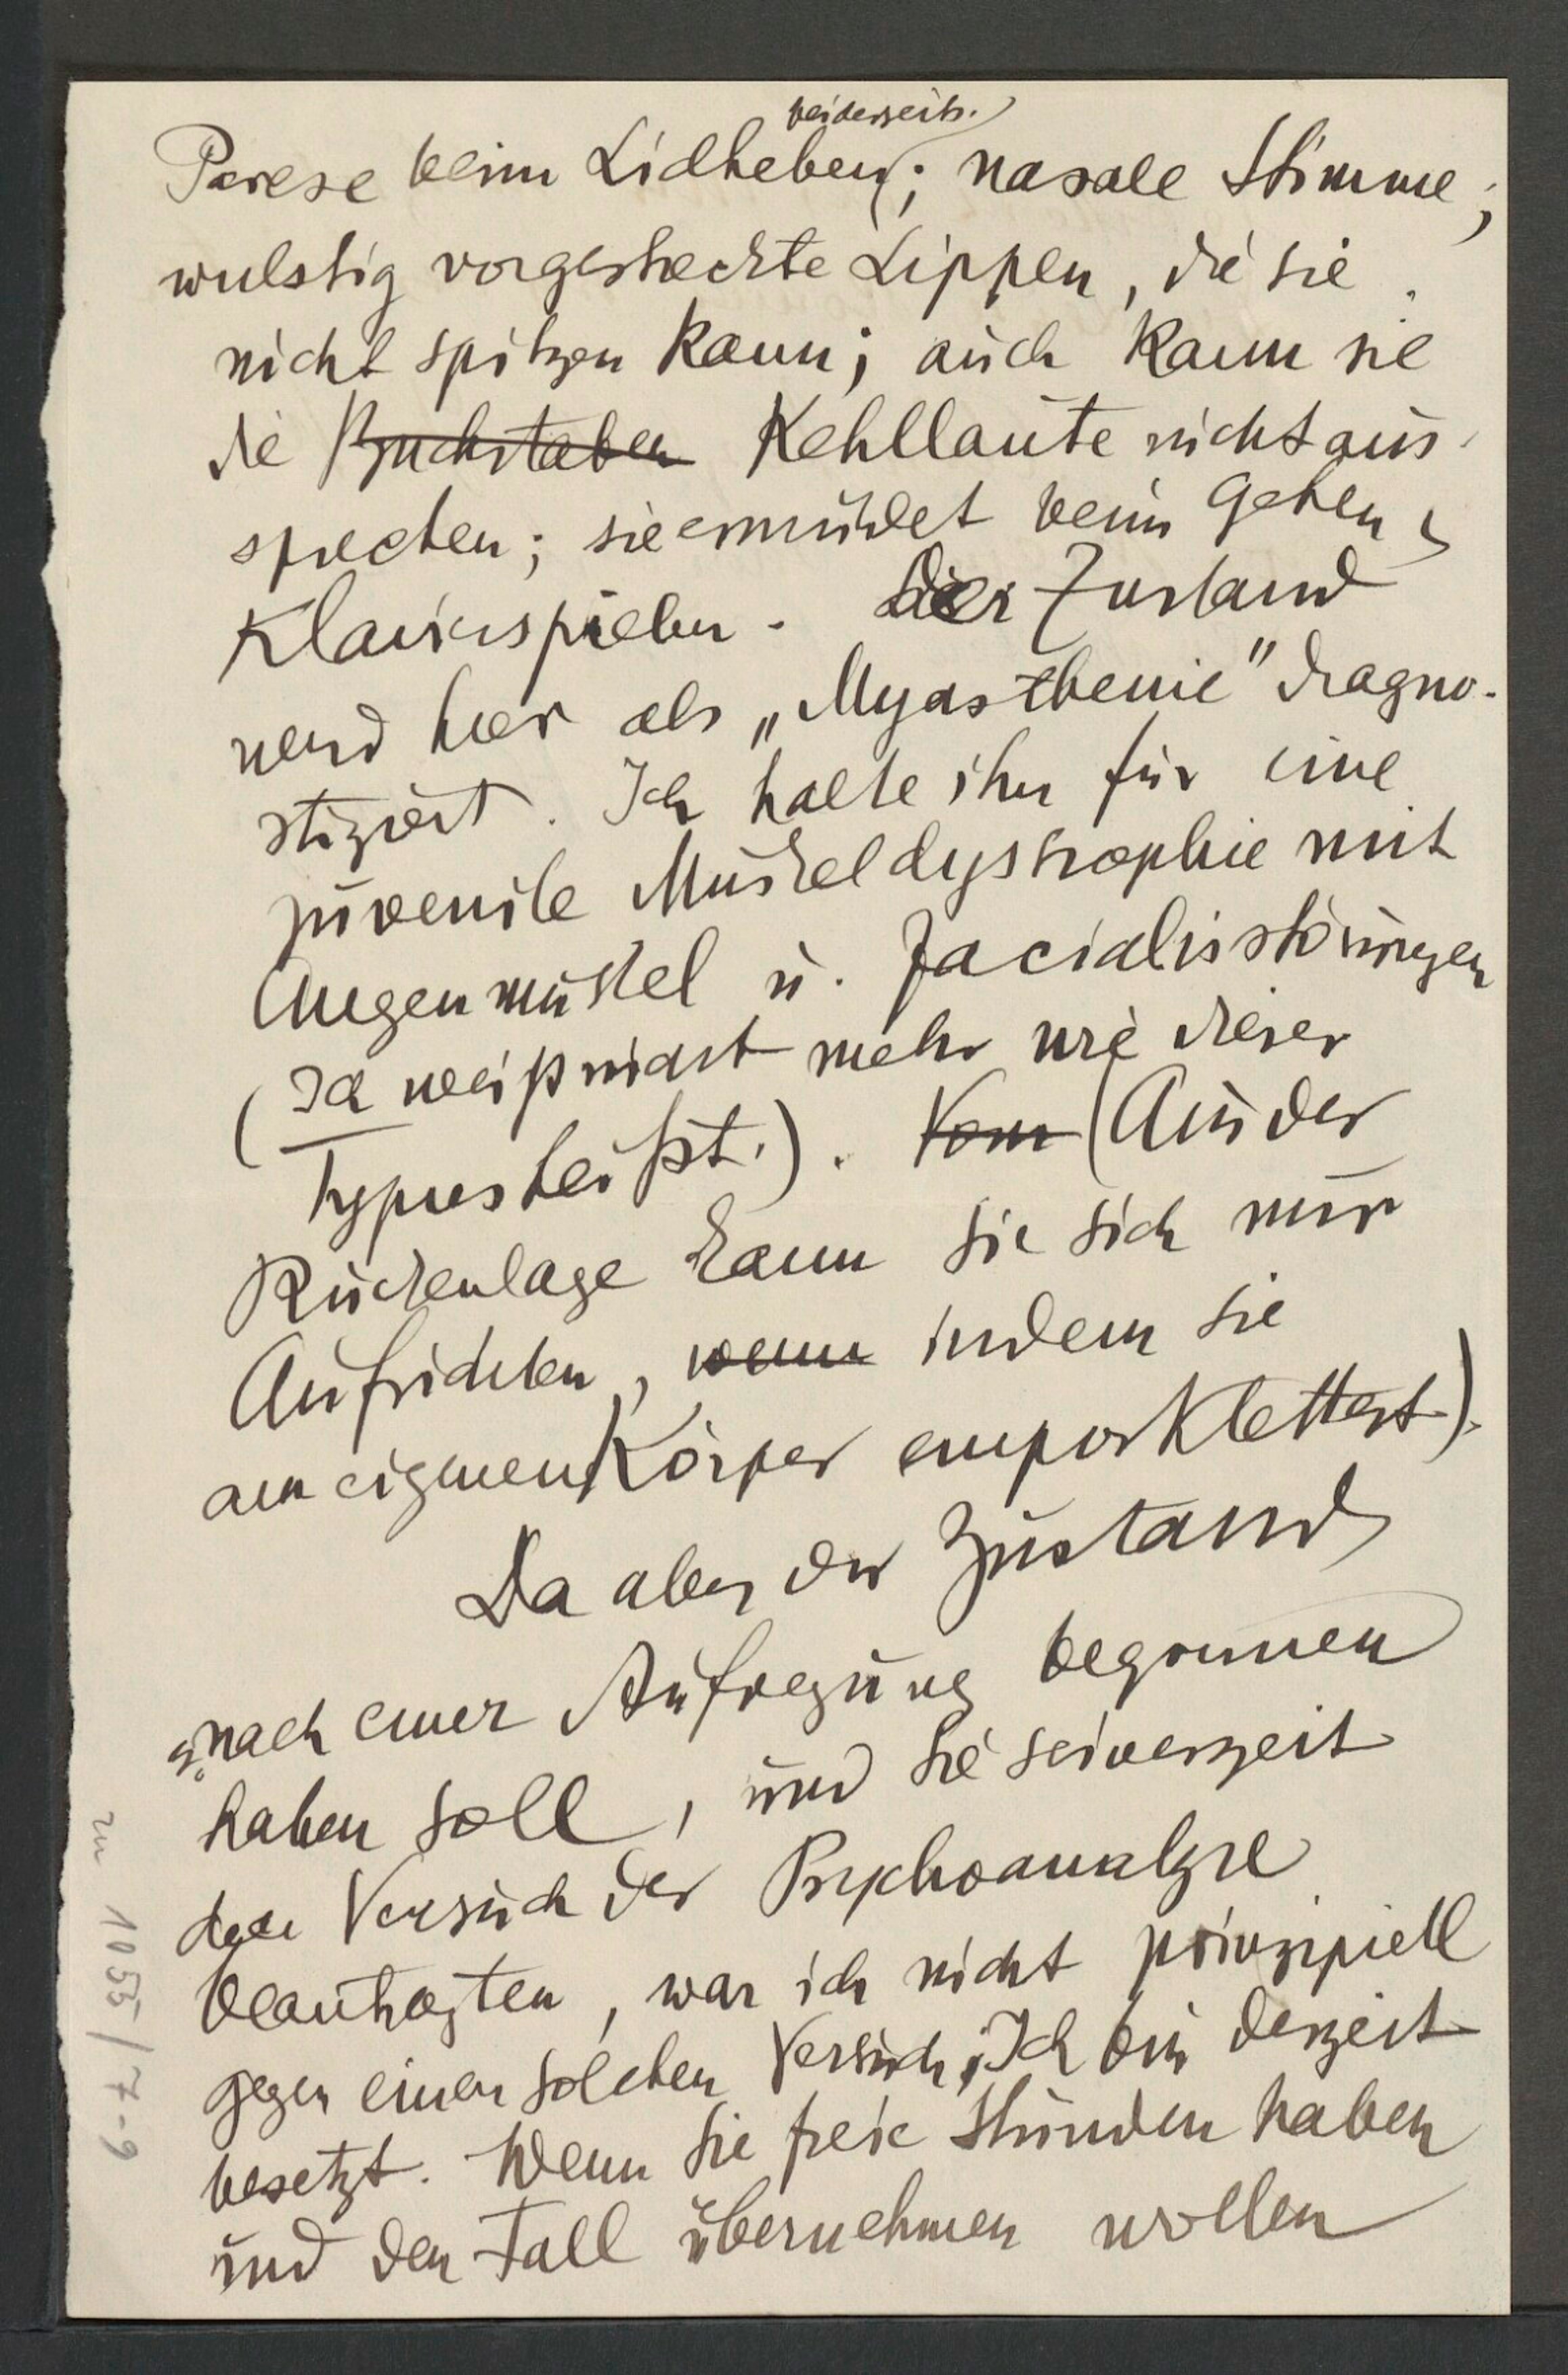 beiderseits.
Parese beim Lidheben; nasale Stimme;
wulstig vorgestreckte Lippen, die sie
nicht spitzen kann; auch kann sie
die Buchstaben Kehllaute nicht aus-
sprechen; sie ermüdet beim Gehen,
Klavierspielen. Der Zustand
werd hier als „Myasthenie" diagno-
stiziert. Ich halte ihn für eine
juvenile Muskeldystrophie mit
Augenmuskel u. Facialisstörungen
(Ich weiß nicht mehr wie dieser
Typus heißt.). Vom (Aus der
Rückenlage kann sie sich nur
Aufrichten, wenn indem sie
am eigenen Körper emporklettert).
Da aber der Zustand
nach einer Aufregung begonnen
haben soll, und Sie seinerzeit
den Versuch der Psychoanalyse
beantragten, war ich nicht prinzipiell
gegen einen solchen Versuch. Ich bin derzeit
besetzt. Wenn Sie freie Stunden haben
und den Fall übernehmen wollen
zu 1055/7-9